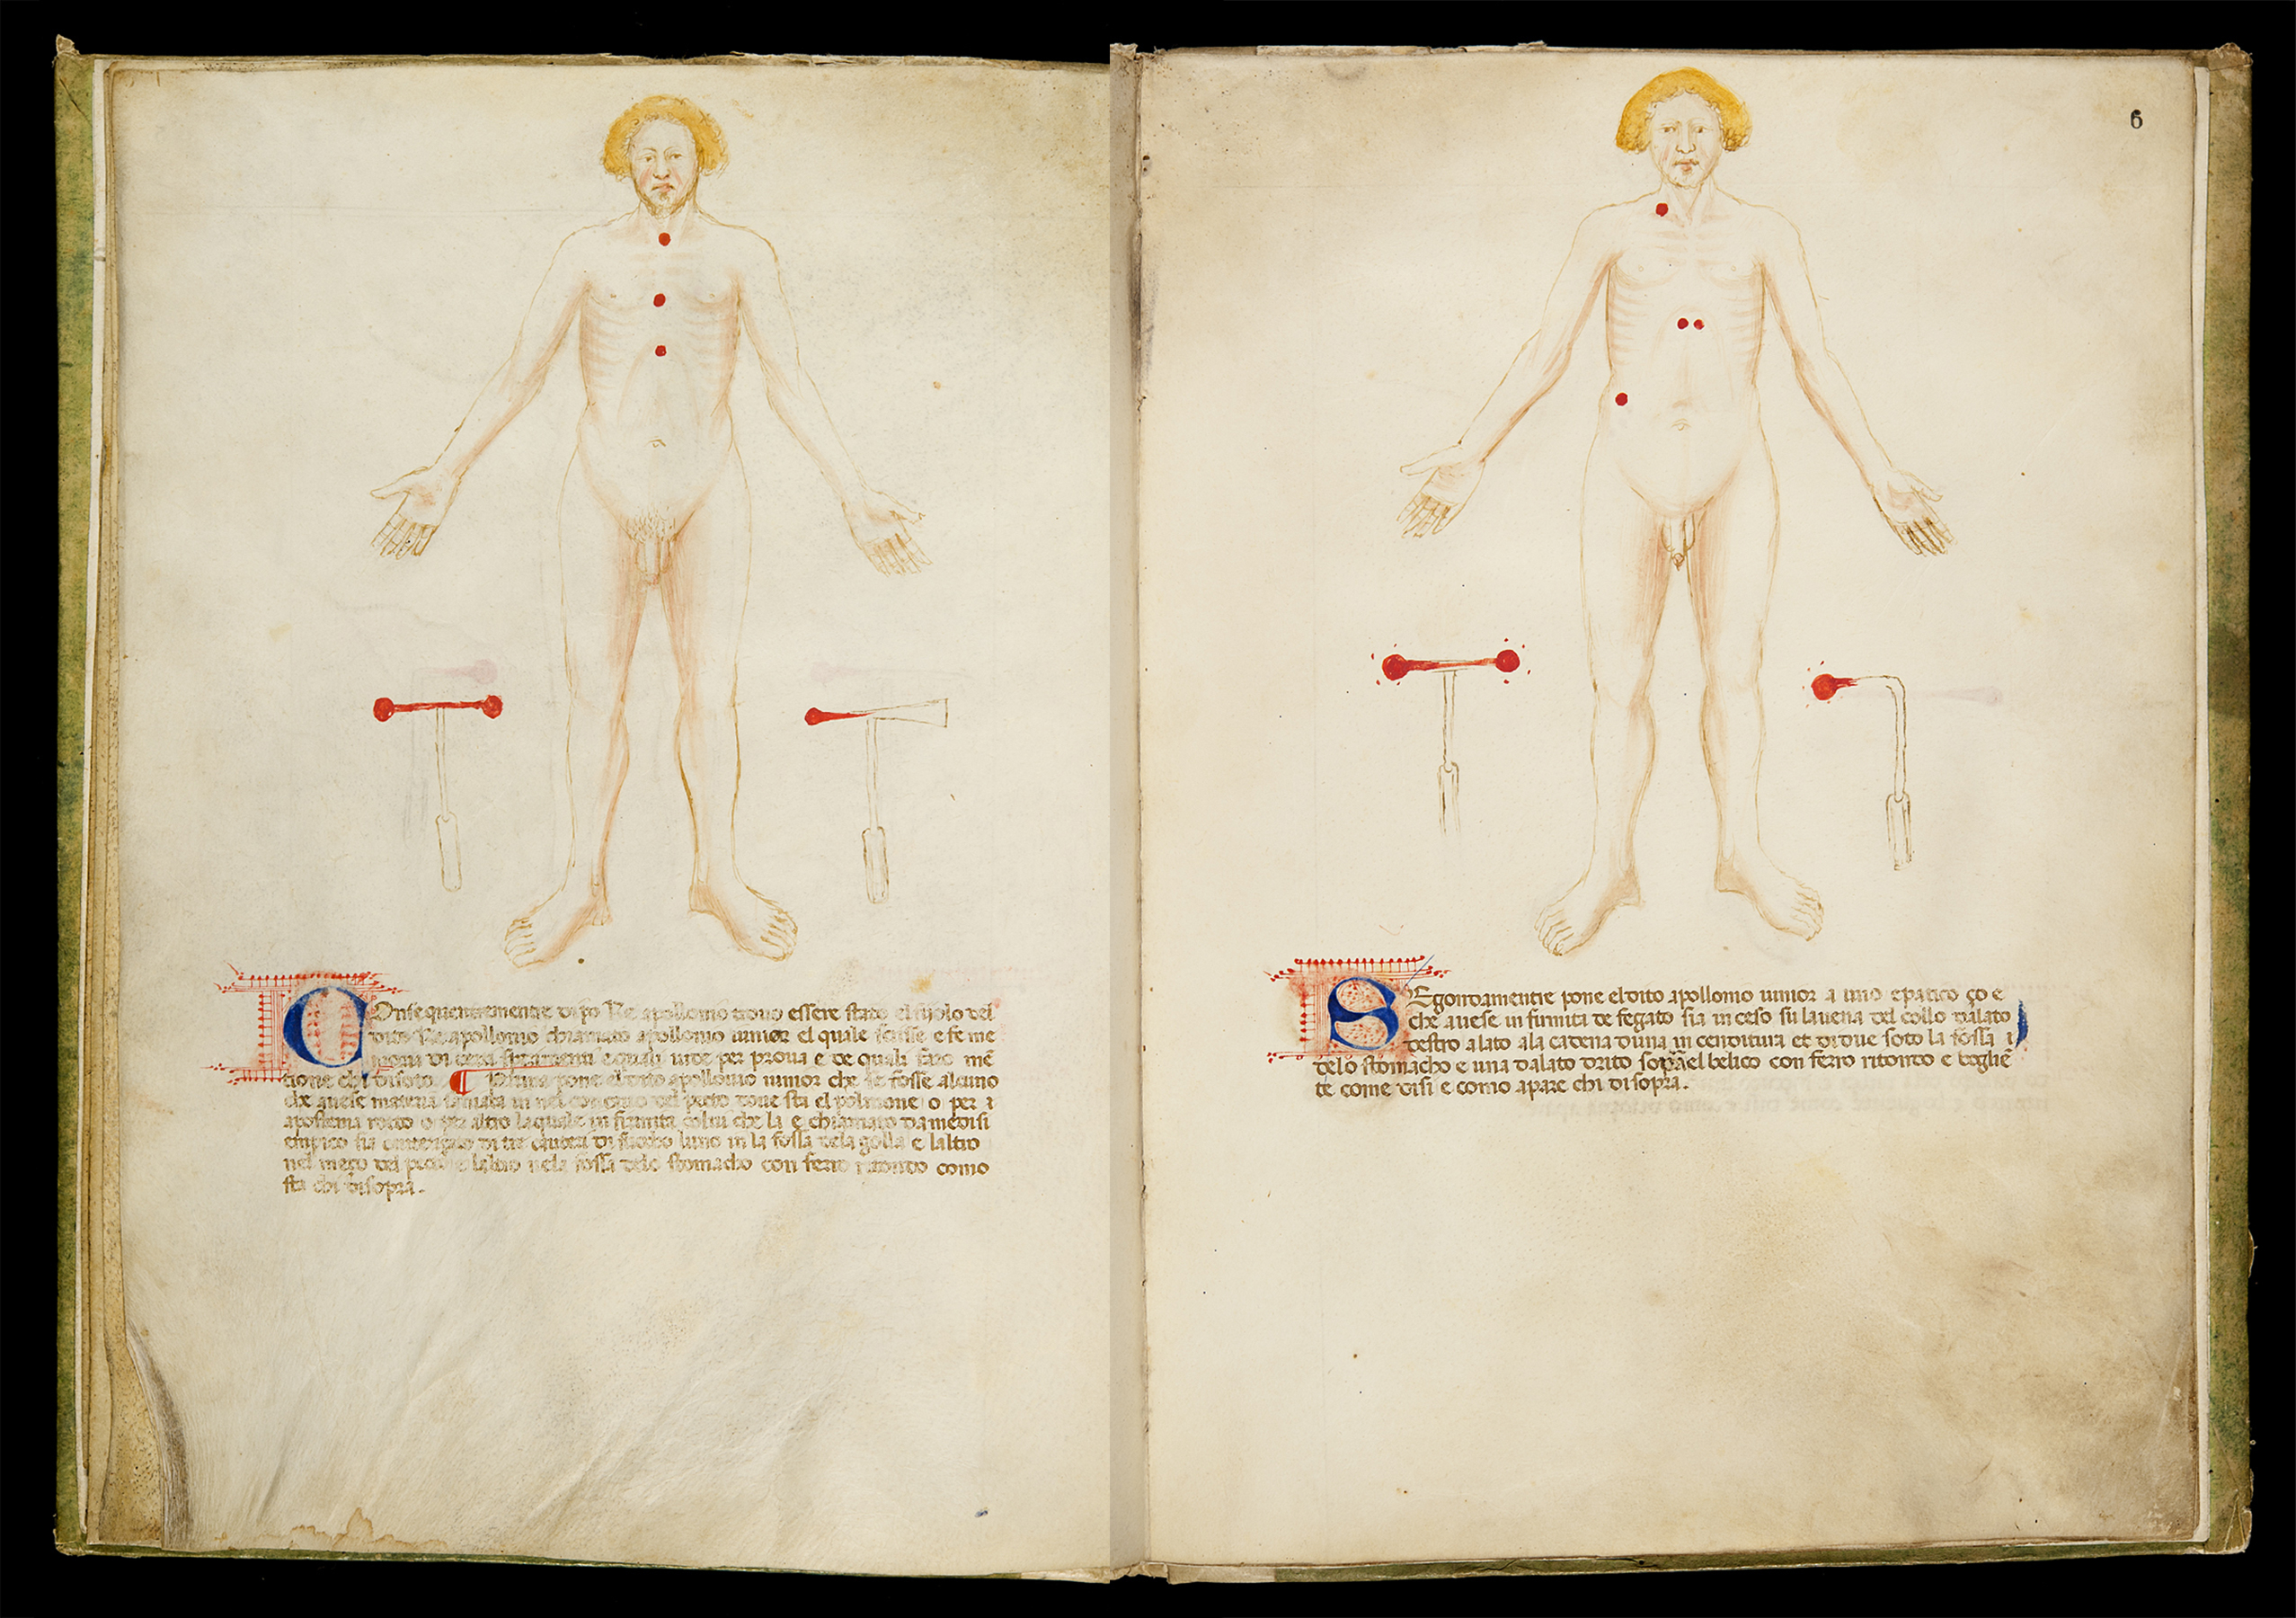 Onsequentemente dipo Re apollonio trouo essere stato el fijolo del
dito Re apollonio chiamato apollonio iunior el quale scrisse e fe me
moria di certi e quali uide per proua e de quali farò mē
tione chi disoto. ¶ Prima pone el dito apollonio iunior che se fosse alcuno
che auese materia in nel del peto doue sta el polmone o per i
apostema roto o per altro la quale in firmita colui che la e chiamato da medisi
empico sia di tri cauteri di fuocho luno in la fossa dela golla e laltro
nel meço del peto e laltro nela fossa delo stomacho con ferro ritondo como
sta chi disopra.
6
SEgondamente pone el dito apollonio iunior a uno epatico ço e
che auese in firmita de fegato sia in ceso su la uena del collo dalato
destro alato ala cadena duna in cenditura et di due soto la fossa i
delo stomacho e una dalato drito sopra el belico con ferro ritondo e boglie
te come disi e como apare chi disopra.